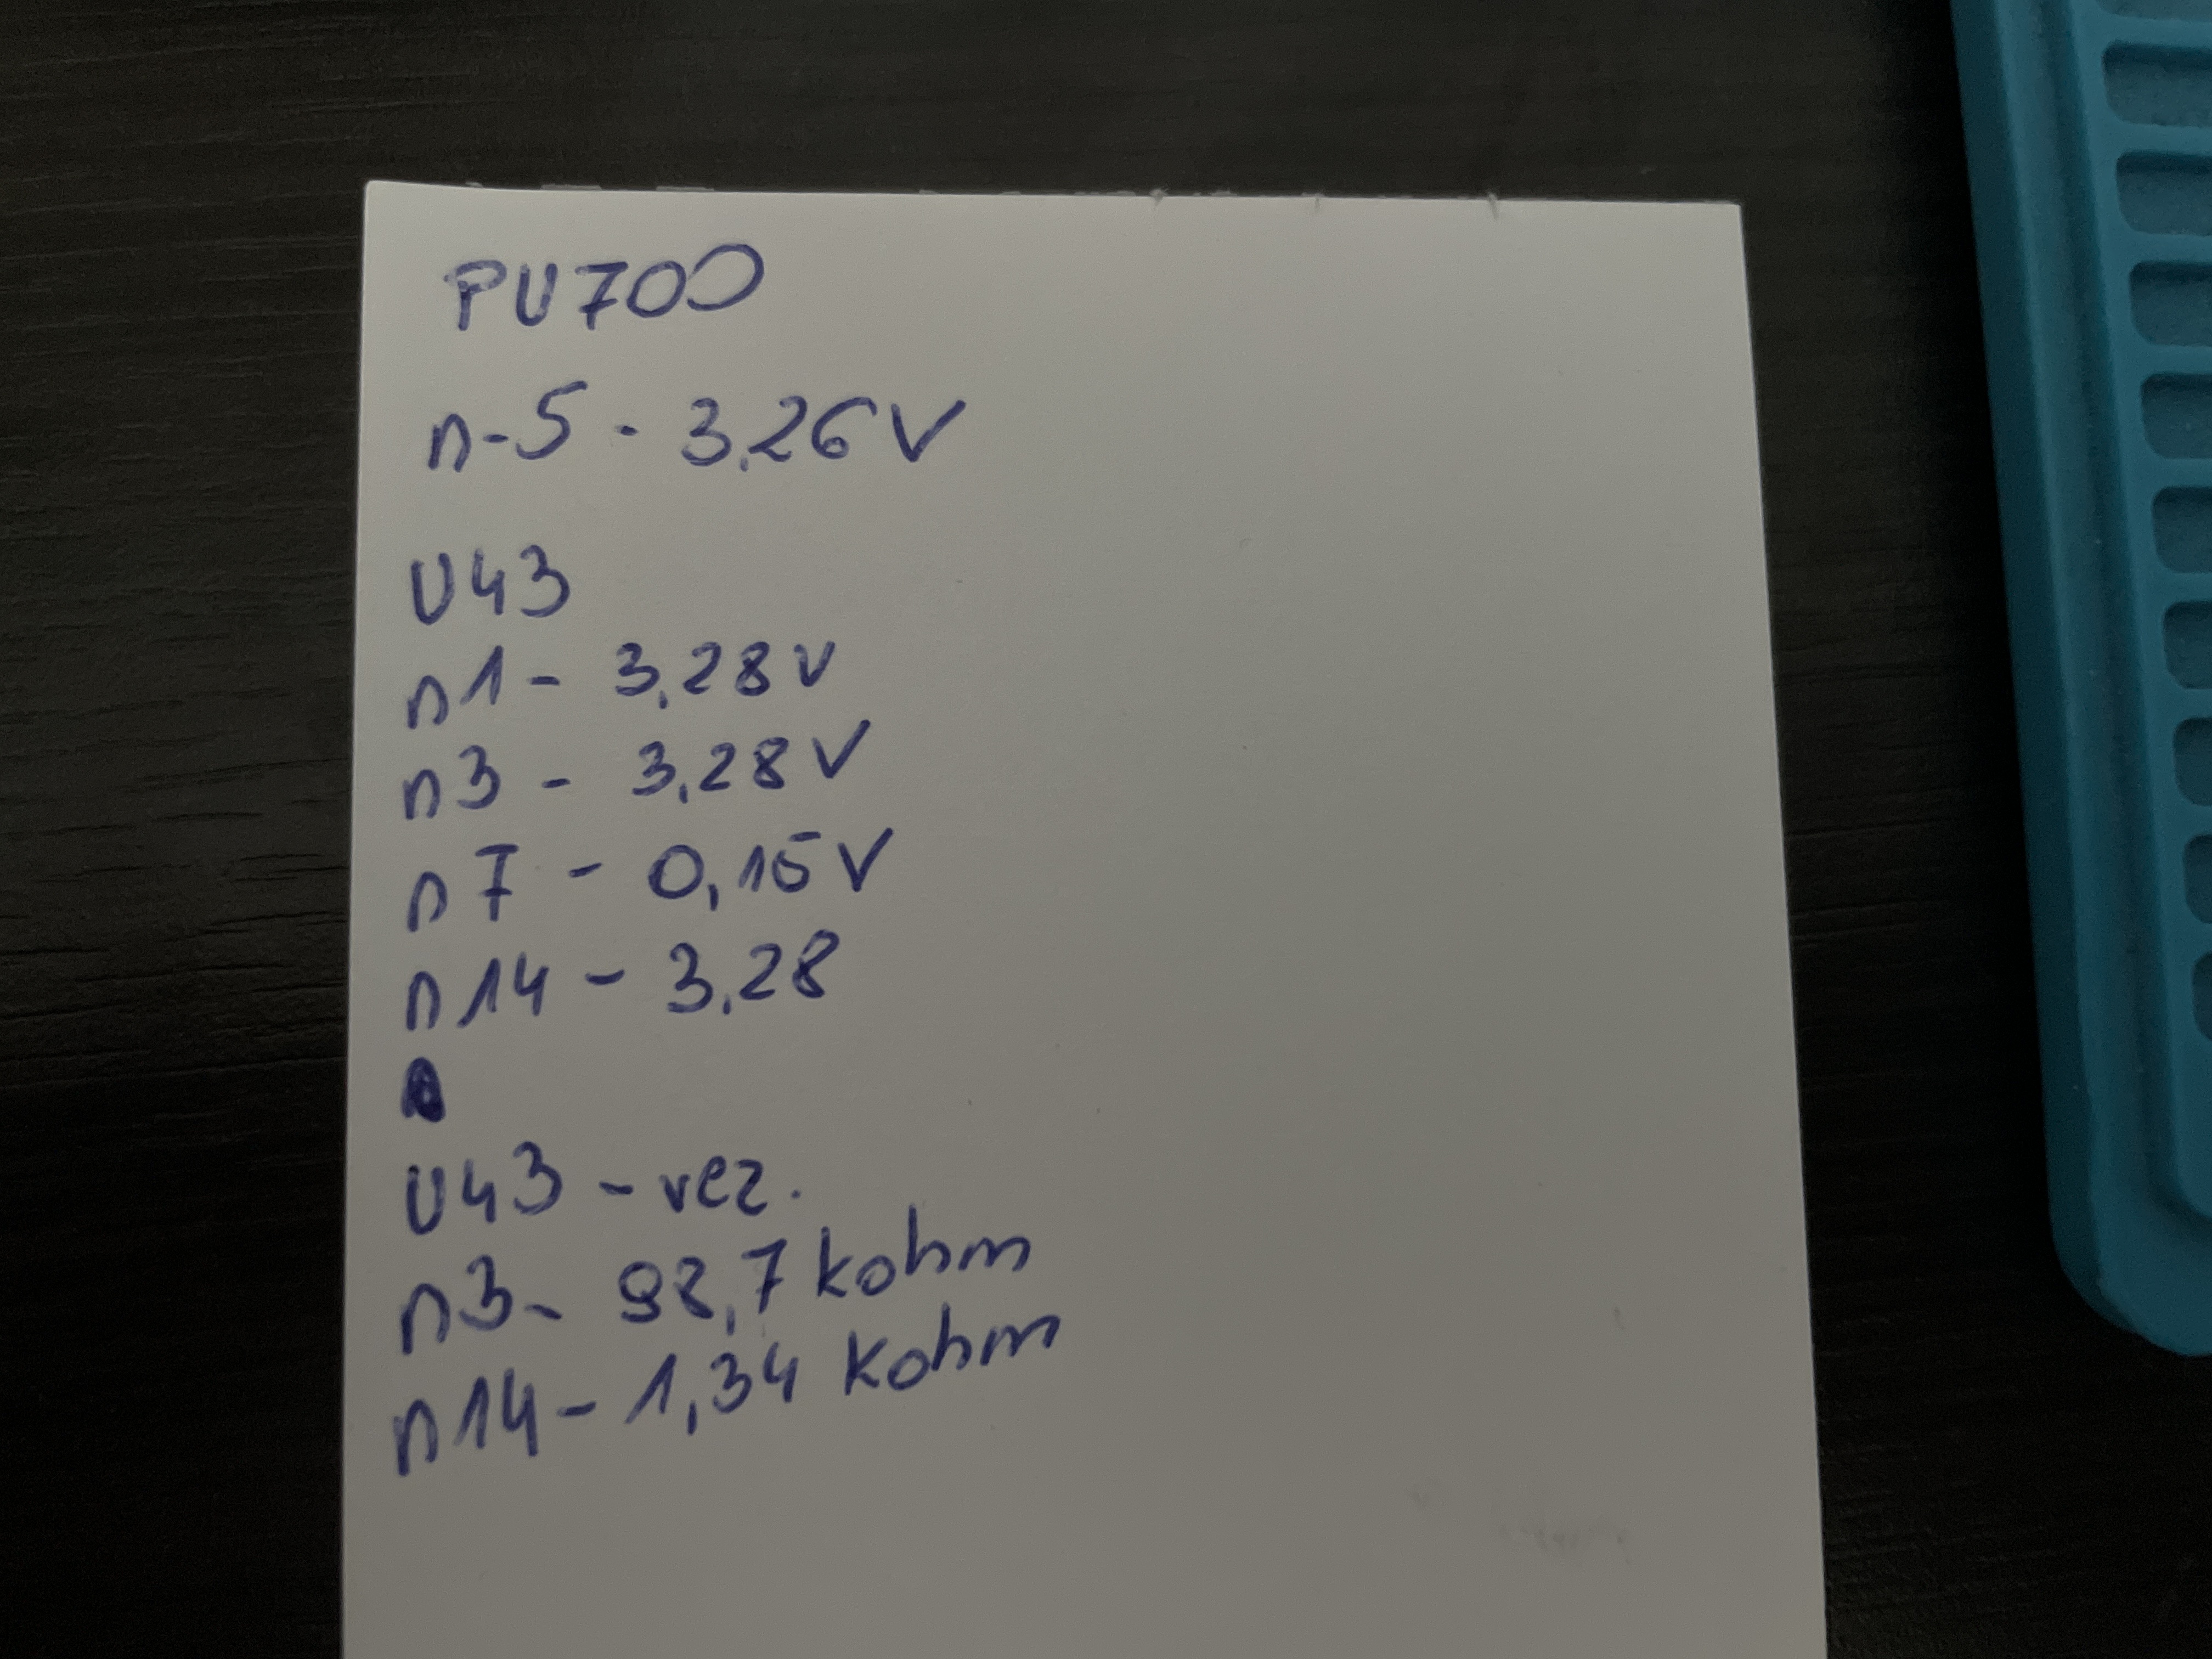 PU700
n-5 - 3,26V
U43
n1 - 3,28V
n3 - 3,28V
n7 - 0,15V
n14 - 3,28
U43 - rez.
n3 - 98,7 kohm
n14 - 1,34 kohm